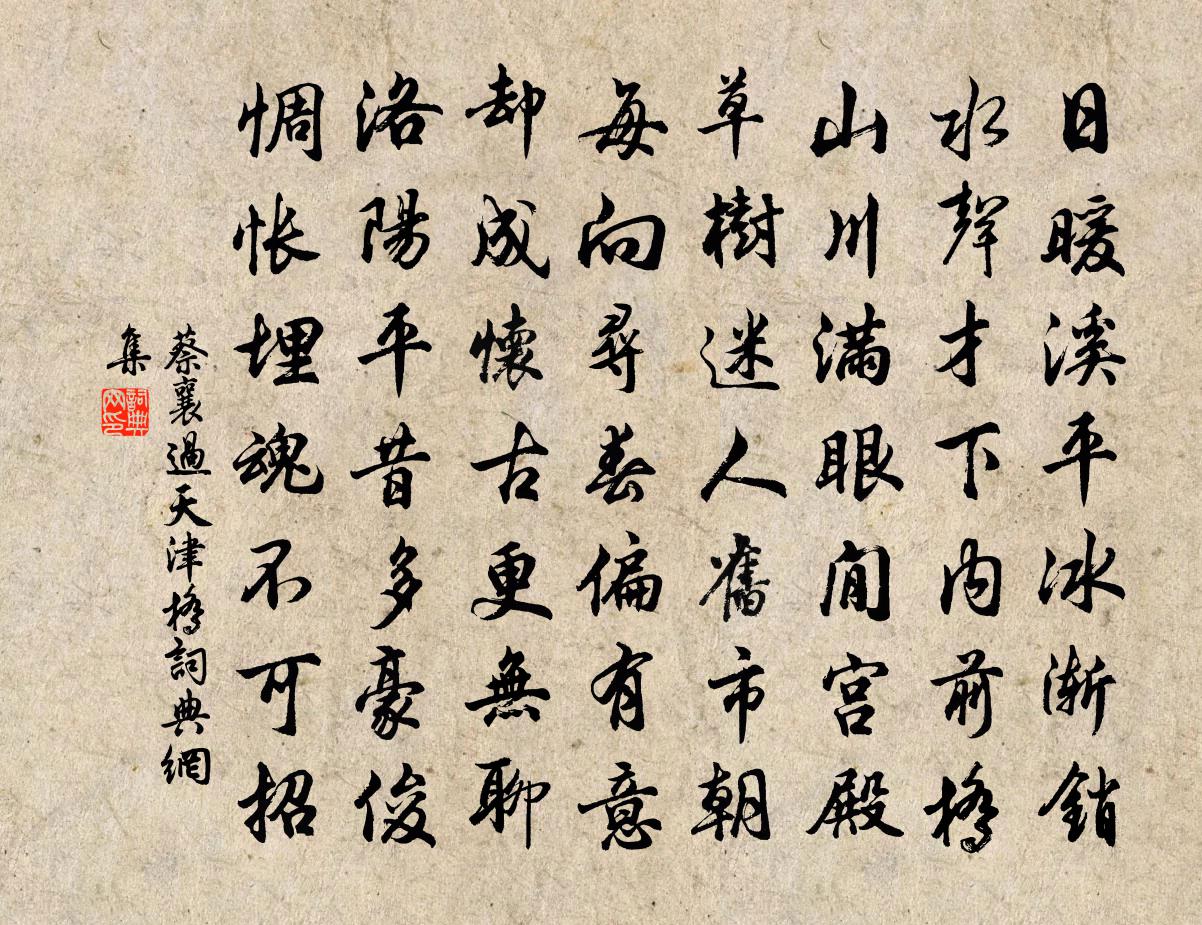 日暖溪平冰漸銷
水聲才下內前橋
山川滿眼閒宮殿
草樹迷人舊市朝
每向尋春偏有意
却成懷古更無聊
洛陽平昔多豪俊
惆悵埋魂不可招
蔡襄過天津橋詞典網
集
詞典網印